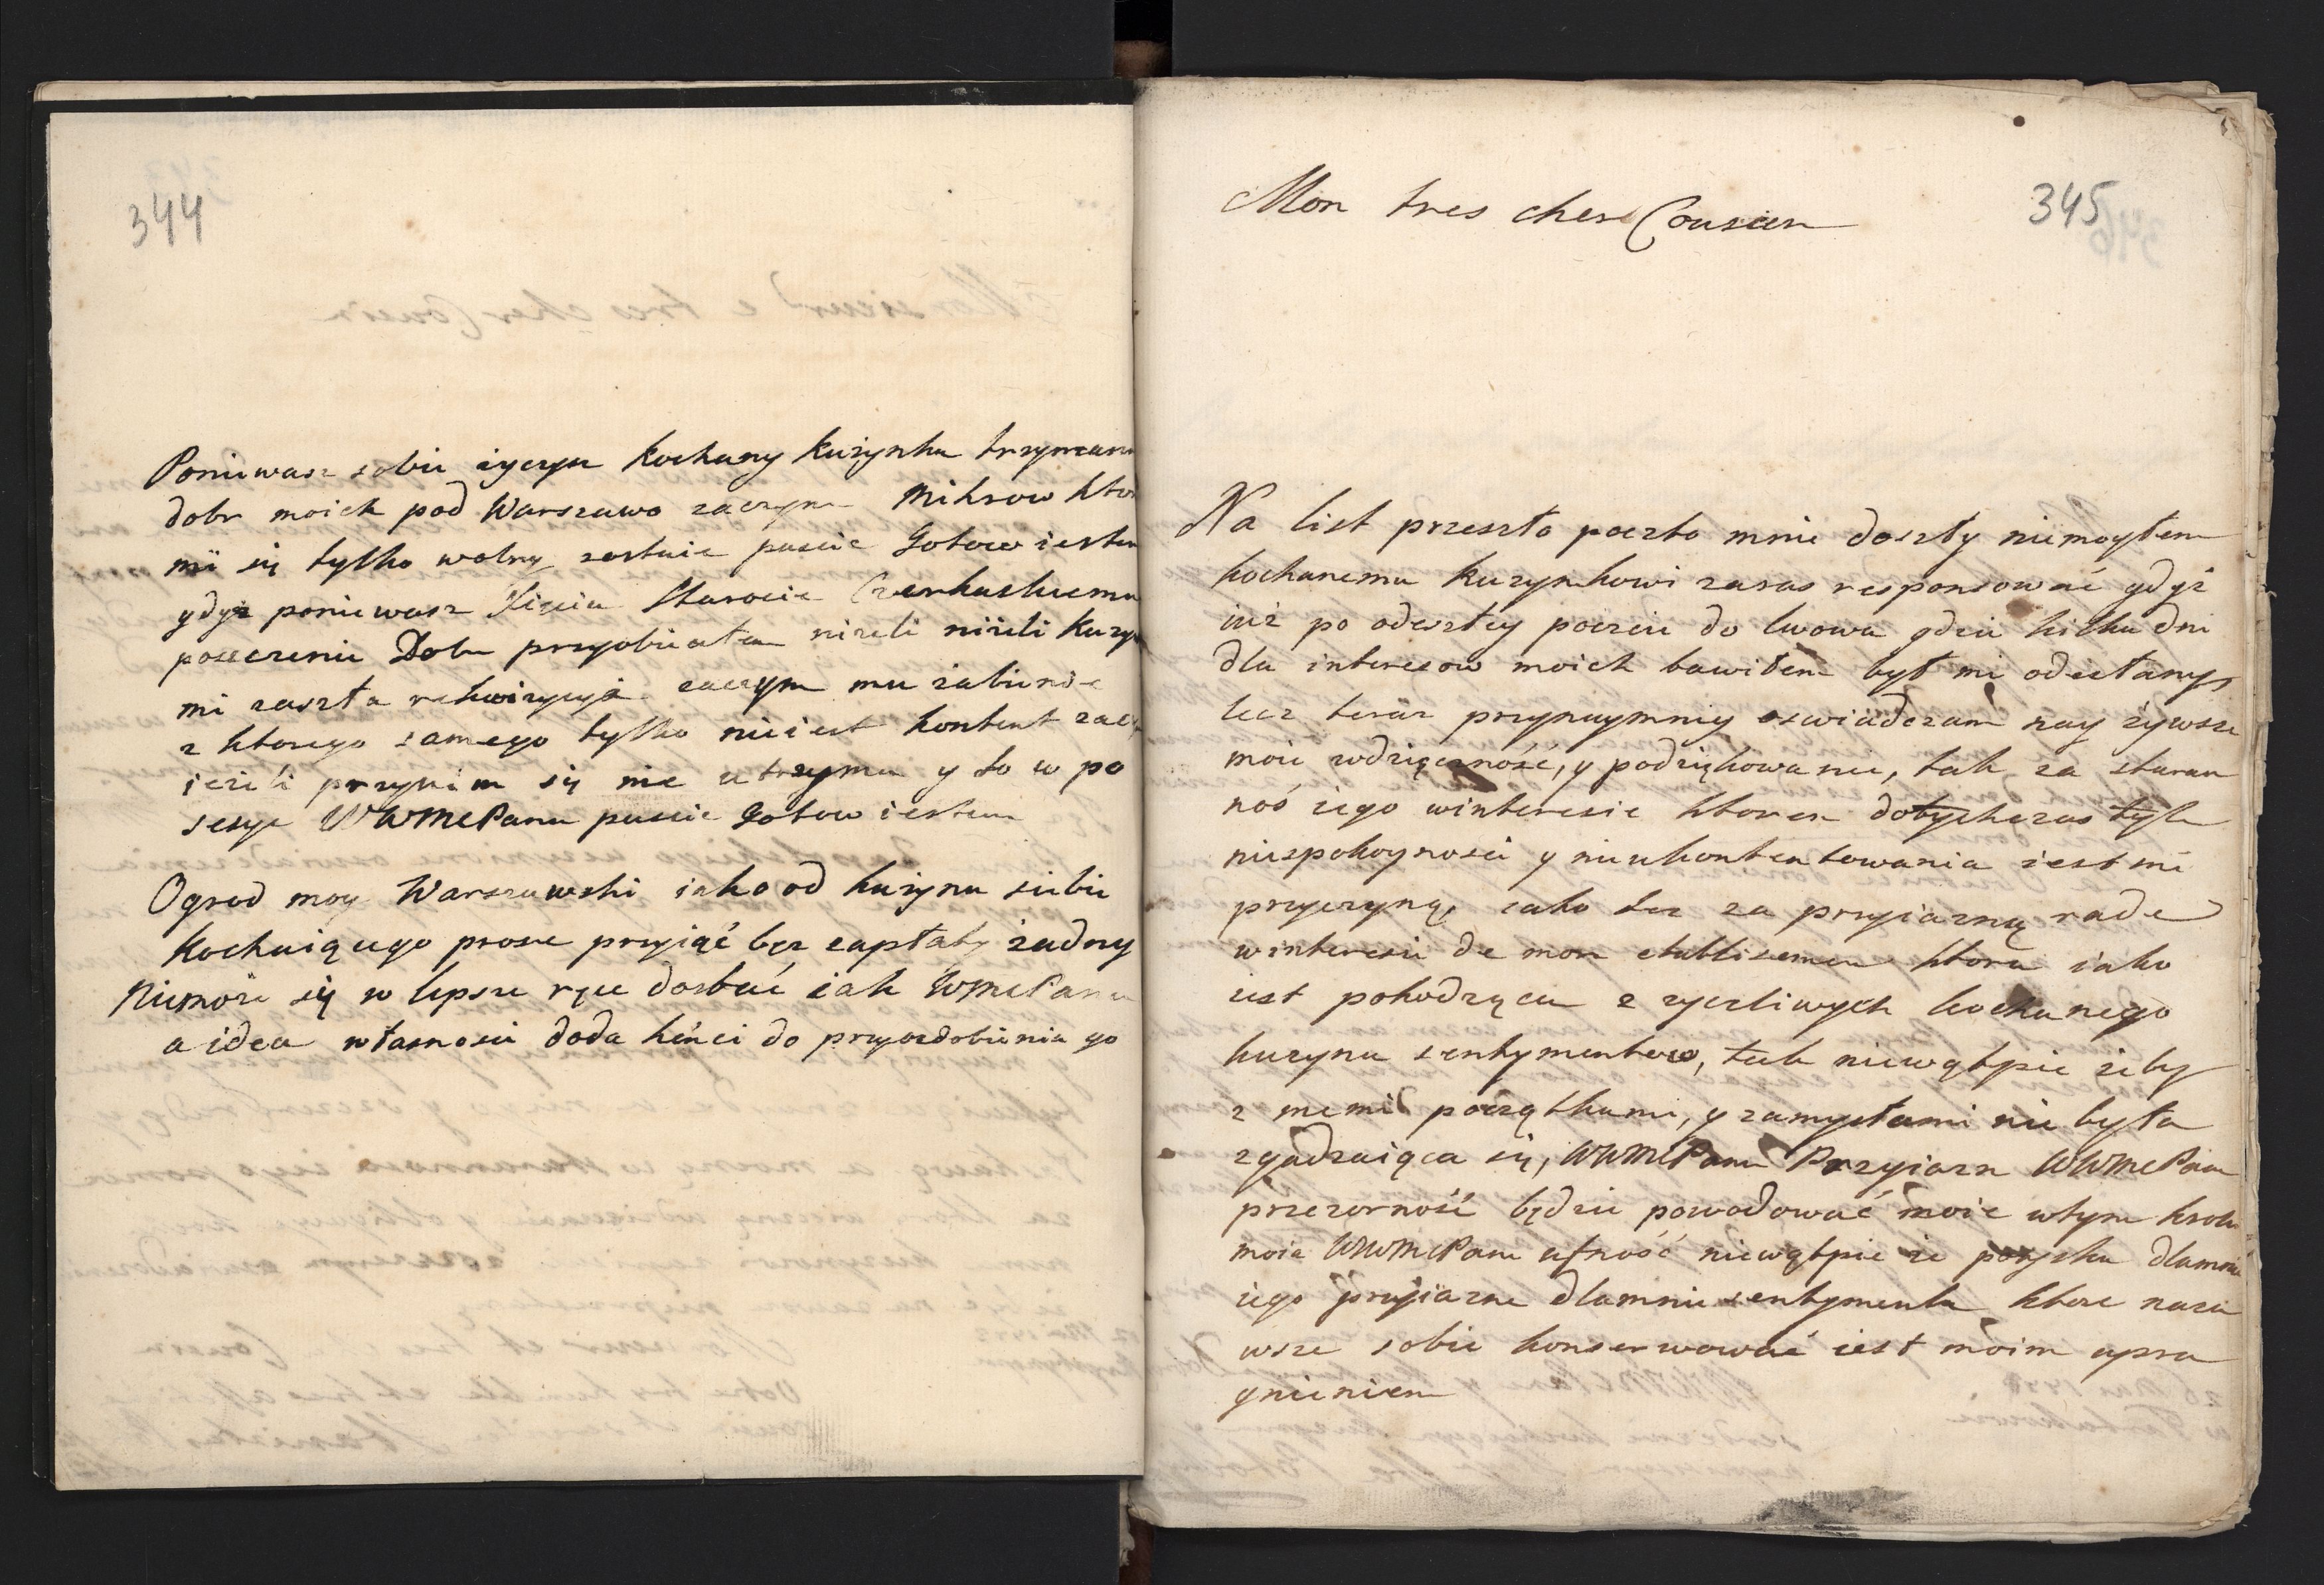 344
Poniewasz sobie zyczysz kochany kuzynku trzyman
dobr moich pod Warszawo zaczym Mikrow ktor
mi się tylko wolny zostaie puscic Gotow iestem
gdyz poniewasz Xięciu Staroscie Czerkaskiemu
puszczenie Dobr przyobiecałem nizeli nizeli kuzy
mi zaszła rekwizycyja zaczym mu zabiorę
z ktorego samego tylko nie iest kontent
iezeli przynim się nie utrzyma y to w po
sesye WWMcPanu puscic Gotow iestem
Ogrod moy Warszawski iako od kuzyna siebie
Kochaiącego prosze przyiąć bez zapłaty zadny
Niemoze się w lepsze ręce dostać iak WMcPana
a idea własnosci doda chęci do przyozdobienia go
345
Mon tres cher Cousien
Na list przeszło poczto mnie doszły niemogłem
kochanemu kuzynkowi zaras responsować gdyż
iuż po odeszłey poczcie do Lwowa gdzie kilka dni
dla interesow moich bawiłem był mi odesłany
lecz teraz przynaymniy oswiadczam nay żywsze
moie wdzięczność, y podziękowanie, tak za staran
noś iego winteresie ktoren dotychczas tyle
niespokoynosci y nieukontentowania iest mi
przyczyną, iako tez za przyiazną rade
winteresie de mon etablisemen ktora iako
iest pohodząca z zyczliwych kochanego
kuzyna sentymentow, tak niewątpie zeby
z memi początkami, y zamysłami nie była
zgadzaiąca się, WWMcPana Przyiazn WWMcPana
przezorność będzie powodować moie wtym kroku
moia WWMcPana ufność niewątpie ze pozyska dlamnie
iego przyiazne dlamnie sentymenta ktore naza
wsze sobie konserwować iest moim upra
gnieniem